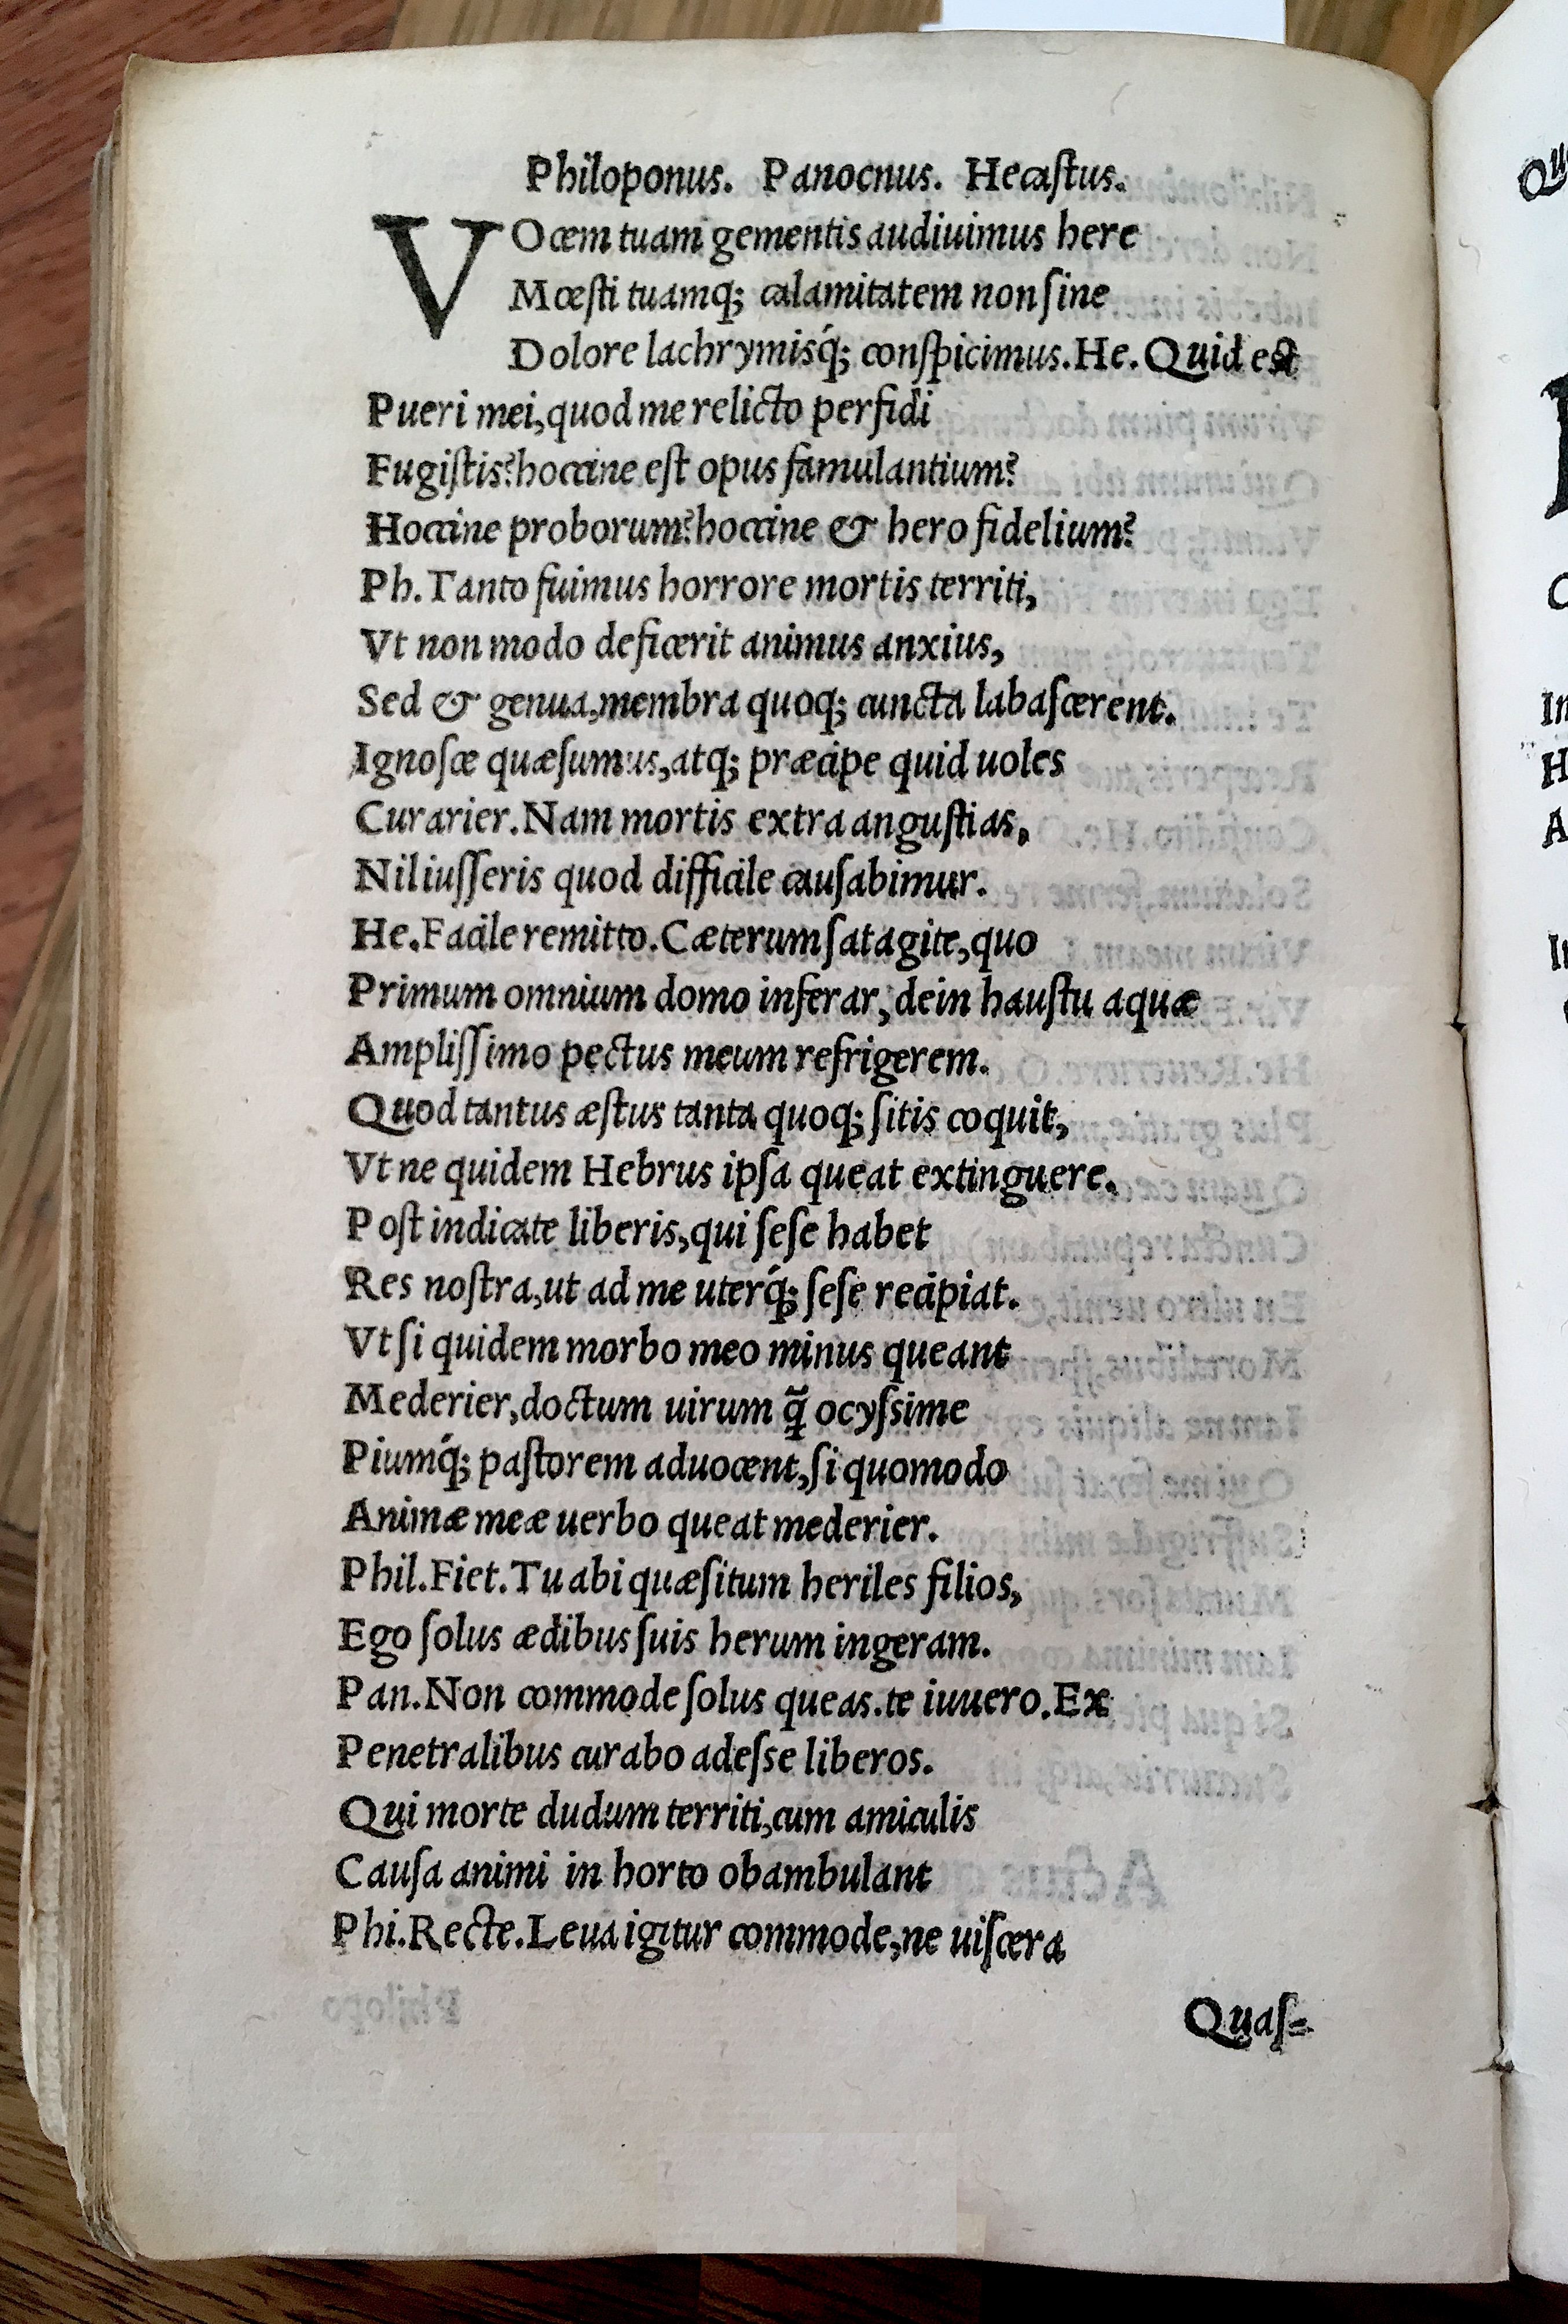 Philoponus. Panocnus. Hecaſtus.
VOcem tuam gementis audiuimus here
Mœſti tuamq; calamitatem non ſine
Dolore lachrymisq́; conſpicimus. He. Quid eſt
Pueri mei, quod me relicto perfidi
Fugiſtis? hoccine eſt opus famulantium?
Hoccine proborum? hoccine & hero fidelium?
Ph. Tanto fuimus horrore mortis territi,
Vt non modo defecerit animus anxius,
Sed & genua, membra quoq; cuncta labaſcerent.
Ignoſce quæſumus, atq; præcipe quid uoles
Curarier. Nam mortis extra anguſtias,
Nil iuſſeris quod difficile cauſabimur.
He. Facile remitto. Cæterum ſatagite, quo
Primum omnium domo inferar, dein hauſtu aquæ
Ampliſſimo pectus meum refrigerem.
Quod tantus æſtus tanta quoq; ſitis coquit,
Vt ne quidem Hebrus ipſa queat extinguere.
Poſt indicate liberis, qui ſeſe habet
Res noſtra, ut ad me uterq́; ſeſe recipiat.
Vt ſi quidem morbo meo minus queant
Mederier, doctum uirum q̃ ocyſsime
Piumq́; paſtorem aduocent, ſi quomodo
Animæ meæ uerbo queat mederier.
Phil. Fiet. Tu abi quæſitum heriles filios,
Ego ſolus ædibus ſuis herum ingeram.
Pan. Non commode ſolus queas. te iuuero. Ex
Penetralibus curabo adeſse liberos.
Qui morte dudum territi, cum amiculis
Cauſa animi in horto obambulant
Phi. Recte. Leua igitur commode, ne uiſcera
Quaſ=